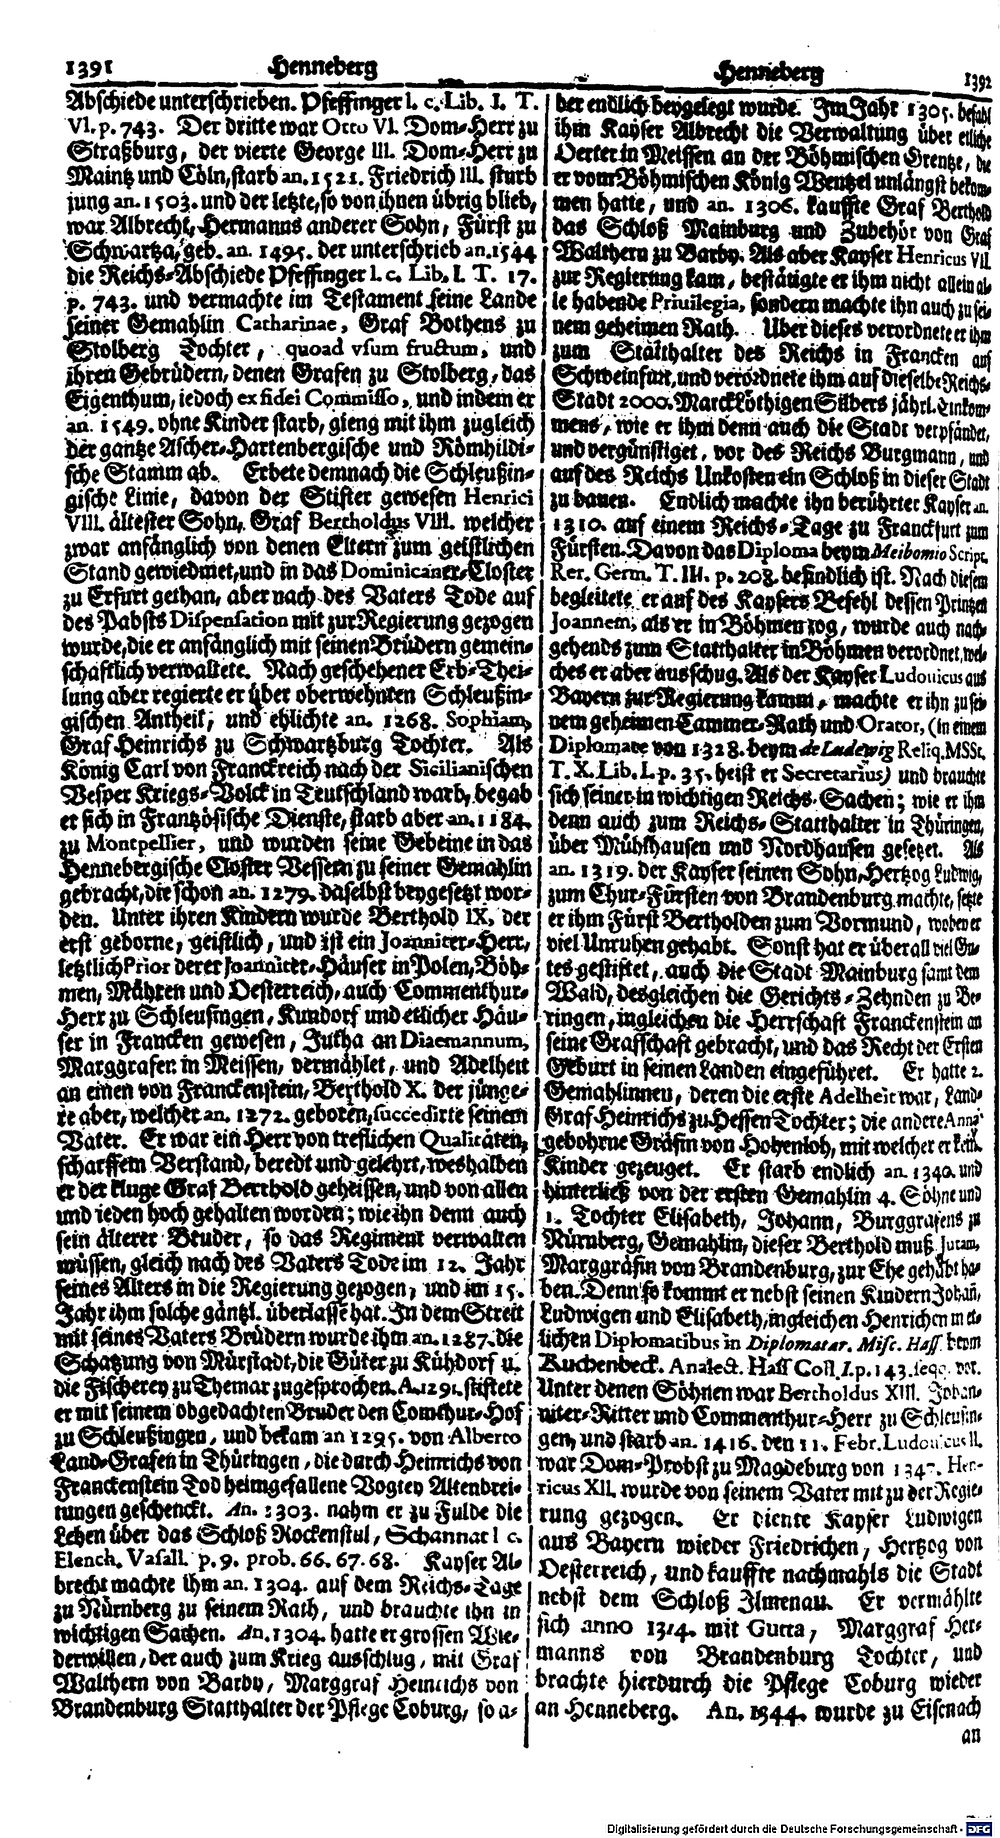 1391 Henneberg
Abschiede unterschrieben. Pfeffinger l. c. Lib. I. T.
VI. p. 743. Der dritte war Otto VI. Dom-Herr zu
Straßburg, der vierte George III. Dom-Herr zu
Maintz und Cöln, starb an. 1521. Friedrich III. sturb
jung an. 1503. und der letzte, so von ihnen übrig blieb,
war Albrecht, Hermanns anderer Sohn, Fürst zu
Schwartza, geb. an. 1495. der unterschrieb an. 1544
die Reichs-Abschiede Pfeffinger l. c. Lib. I. T. 17.
p. 743. und vermachte im Testament seine Lande
seiner Gemahlin Catharinae, Graf Bothens zu
Stolberg Tochter, quoad vsum fructum, und
ihren Gebrüdern, denen Grafen zu Stolberg, das
Eigenthum, iedoch ex fidei Commisso, und indem er
an. 1549. ohne Kinder starb, gieng mit ihm zugleich
der gantze Ascher-Hartenbergische und Römhildi-
sche Stamm ab. Erbete demnach die Schleußin-
gische Linie, davon der Stifter gewesen Henrici
VIII. ältester Sohn, Graf Bertholdus VIII. welcher
zwar anfänglich von denen Eltern zum geistlichen
Stand gewiedmet, und in das Dominicaner-Closter
zu Erfurt gethan, aber nach des Vaters Tode auf
des Pabsts Dispensation mit zur Regierung gezogen
wurde, die er anfänglich mit seinen Brüdern gemein-
schaftlich verwaltete. Nach geschehener Erb-Thei-
lung aber regierte er über oberwehnten Schleußin-
gischen Antheil, und ehlichte an. 1268. Sophiam,
Graf Heinrichs zu Schwartzburg Tochter. Als
König Carl von Franckreich nach der Sicilianischen
Vesper Kriegs-Volck in Teutschland warb, begab
er sich in Frantzösische Dienste, starb aber an. 1184.
zu Montpellier, und wurden seine Gebeine in das
Hennebergische Closter Vessern zu seiner Gemahlin
gebracht, die schon an. 1279. daselbst beygesetzt wor-
den. Unter ihren Kindern wurde Berthold IX. der
erst geborne, geistlich, und ist ein Joanniter-Herr,
letztlich Prior derer Joanniter-Häuser in Polen, Böh-
men, Mähren und Oesterreich, auch Commenthur-
Herr zu Schleusingen, Kundorf und etlicher Häu-
ser in Francken gewesen, Jutha an Diaemannum,
Marggrafen in Meissen, vermählet, und Adelheit
an einen von Franckenstein, Berthold X. der jünge-
re aber, welcher an. 1272. geboren, succedirte seinem
Vater. Er war ein Herr von treflichen Qualitäten,
scharffem Verstand, beredt und gelehrt, weshalben
er der kluge Graf Berthold geheissen, und von allen
und ieden hoch gehalten worden; wie ihn denn auch
sein älterer Bruder, so das Regiment verwalten
müssen, gleich nach des Vaters Tode im 12. Jahr
seines Alters in die Regierung gezogen, und im 15.
Jahr ihm solche gäntzl. überlasse hat. In dem Streit
mit seines Vaters Brüdern wurde ihm an. 1287. die
Schatzung von Mürstadt, die Güter zu Kühdorf u.
die Fischerey zu Themar zugesprochen. A. 1291. stiftete
er mit seinem obgedachten Bruder den Comthur-Hof
zu Schleußingen, und bekam an 1295. von Alberto
Land-Grafen in Thüringen, die durch Heinrichs von
Franckenstein Tod heimgefallene Vogtey Altenbrei-
tungen geschenckt. An. 1303. nahm er zu Fulde die
Lehen über das Schloß Rockenstul, Schannat l c.
Elench. Vasall. p. 9. prob. 66. 67. 68. Kayser Al-
brecht machte ihm an. 1304. auf dem Reichs-Tage
zu Nürnberg zu seinem Rath, und brauchte ihn in
wichtigen Sachen. An. 1304. hatte er grossen Wie-
derwillen, der auch zum Krieg ausschlug, mit Graf
Walthern von Barby, Marggraf Heinrichs von
Brandenburg Statthalter der Pflege Coburg, so a-
Henneberg 1392
der endlich beygelegt wurde. Im Jahr 1305. befahl
ihm Kayser Albrecht die Verwaltung über etliche
Oerter in Meissen an der Böhmischen Grentze, die
er vom Böhmischen König Wentzel unlängst bekom-
men hatte, und an. 1306. kauffte Graf Berthold
das Schloß Mainburg und Zubehör von Graf
Walthern zu Barby. Als aber Kayser Henricus VII.
zur Regierung kam, bestätigte er ihm nicht allein al-
le habende Priuilegia, sondern machte ihn auch zu sei-
nem geheimen Rath. Uber dieses verordnete er ihm
zum Statthalter des Reichs in Francken auf
Schweinfurt, und verordnete ihm auf dieselbe Reichs-
Stadt 2000. Marck Löthigen Silbers jährl. Einkom-
mens, wie er ihm denn auch die Stadt verpfändet,
und vergünstiget, vor des Reichs Burgmann, und
auf des Reichs Unkosten ein Schloß in dieser Stadt
zu bauen. Endlich machte ihn berührter Kayser an.
1310. auf einem Reichs-Tage zu Franckfurt zum
Fürsten. Davon das Diploma beym Meibomio Script.
Rer. Germ. T. III. p. 208. befindlich ist. Nach diesem
begleitete er auf des Kaysers Befehl dessen Printzen
Joannem, als er in Böhmen zog, wurde auch nach-
gehends zum Statthalter in Böhmen verordnet, wel-
ches er aber ausschug. Als der Kayser Ludouicus aus
Bayern zur Regierung kamm, machte er ihn zu sei-
nem geheimen Cammer-Rath und Orator, (in einem
Diplomate von 1328. beym de Ludewig Reliq. MSSt.
T. X. Lib. I. p. 35. heist er Secretarius) und brauchte
sich seiner in wichtigen Reichs-Sachen; wie er ihn
denn auch zum Reichs-Statthalter in Thüringen,
über Mühlhausen und Nordhausen gesetzet. Als
an. 1319. der Kayser seinen Sohn, Hertzog Ludwig,
zum Chur-Fürsten von Brandenburg machte, setzte
er ihm Fürst Bertholden zum Vormund, wobey er
viel Unruhen gehabt. Sonst hat er überall viel Gu-
tes gestiftet, auch die Stadt Mainburg samt dem
Wald, desgleichen die Gerichts-Zehnden zu Be-
ringen, ingleichen die Herrschaft Franckenstein an
seine Grafschaft gebracht, und das Recht der Ersten
Geburt in seinen Landen eingeführet. Er hatte 2.
Gemahlinnen, deren die erste Adelheit war, Land-
Graf Heinrichs zu Hessen Tochter; die andere Anna
gebohrne Gräfin von Hohenloh, mit welcher er kein
Kinder gezeuget. Er starb endlich an. 1340. und
hinterließ von der ersten Gemahlin 4. Söhne und
1. Tochter Elisabeth, Johann, Burggrafens zu
Nürnberg, Gemahlin, dieser Berthold muß Jutam,
Marggräfin von Brandenburg, zur Ehe gehabt ha-
ben. Denn so kommt er nebst seinen Kindern Johañ,
Ludwigen und Elisabeth, ingleichen Henrichen in et-
lichen Diplomatibus in Diplomatar. Misc. Hass. beym
Kuchenbeck. Analect. Hass Coll. I. p. 143. seqq. vor.
Unter denen Söhnen war Bertholdus XIII. Johan-
niter-Ritter und Commenthur-Herr zu Schleusin-
gen, und starb an. 1416. den 11. Febr. Ludouicus II.
war Dom-Probst zu Magdeburg von 1347. Hen-
ricus XII. wurde von seinem Vater mit zu der Regie-
rung gezogen. Er diente Kayser Ludwigen
aus Bayern wieder Friedrichen, Hertzog von
Oesterreich, und kauffte nachmahls die Stadt
nebst dem Schloß Ilmenau. Er vermählte
sich anno 1314. mit Gutta, Marggraf Her-
manns von Brandenburg Tochter, und
brachte hierdurch die Pflege Coburg wieder
an Henneberg. An. 1344. wurde zu Eisenach
an
Digitalisierung gefördert durch die Deutsche Forschungsgemeinschaft - DFG